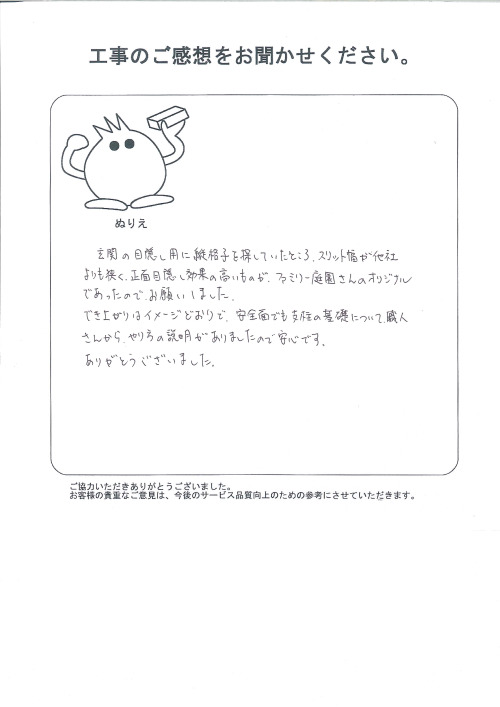 工事のご感想をお聞かせください。
ぬりえ
玄関の目隠し用に縦格子を探していたところ、スリット幅が他社
よりも狭く、正面目隠し効果の高いものが、ファミリー庭園さんのオリジナル
であったので、お願いしました。
でき上がりはイメージどおりで、安全面でも支柱の基礎について、職人
さんから、やり方の説明がありましたので安心です。
ありがとうございました。
ご協力いただきありがとうございました。
お客様の貴重なご意見は、今後のサービス品質向上のための参考にさせていただきます。